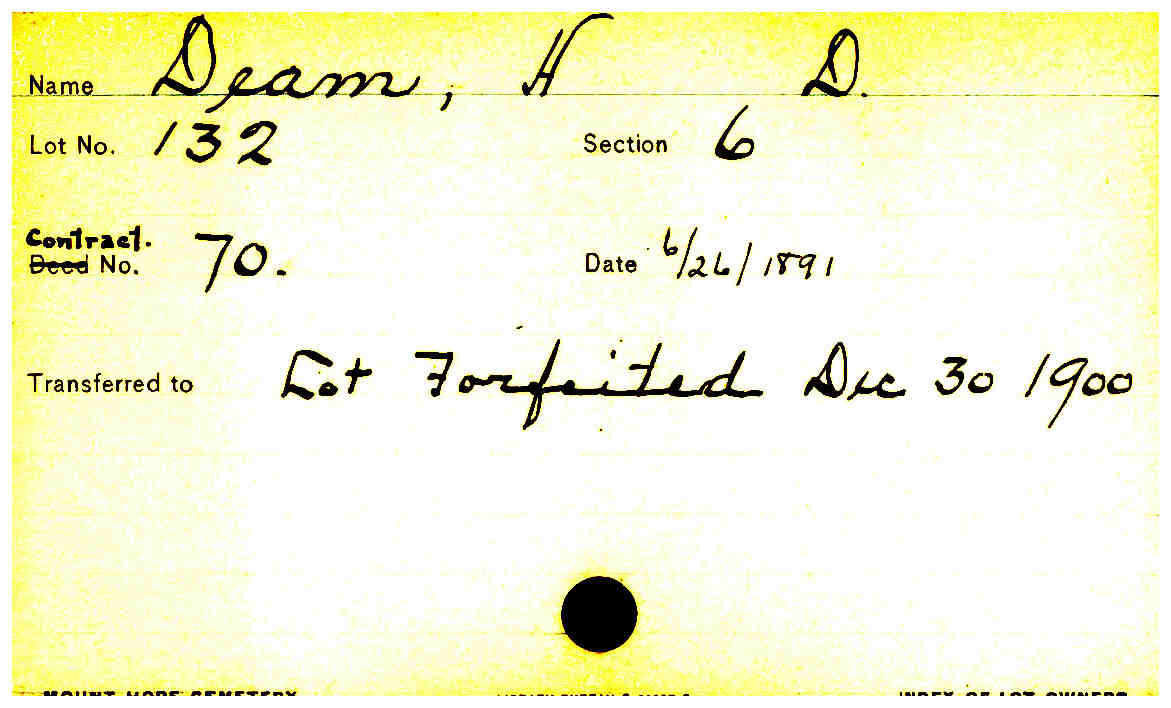 Name Deam, H D.
Lot No. 132 Section 6
Contract.
Deed No. 70. Date 6/26/1891
Transferred to Lot Forfeited Dec 30 1900
MOUNT HOPE CEMETERY INDEX OF LOT OWNERS